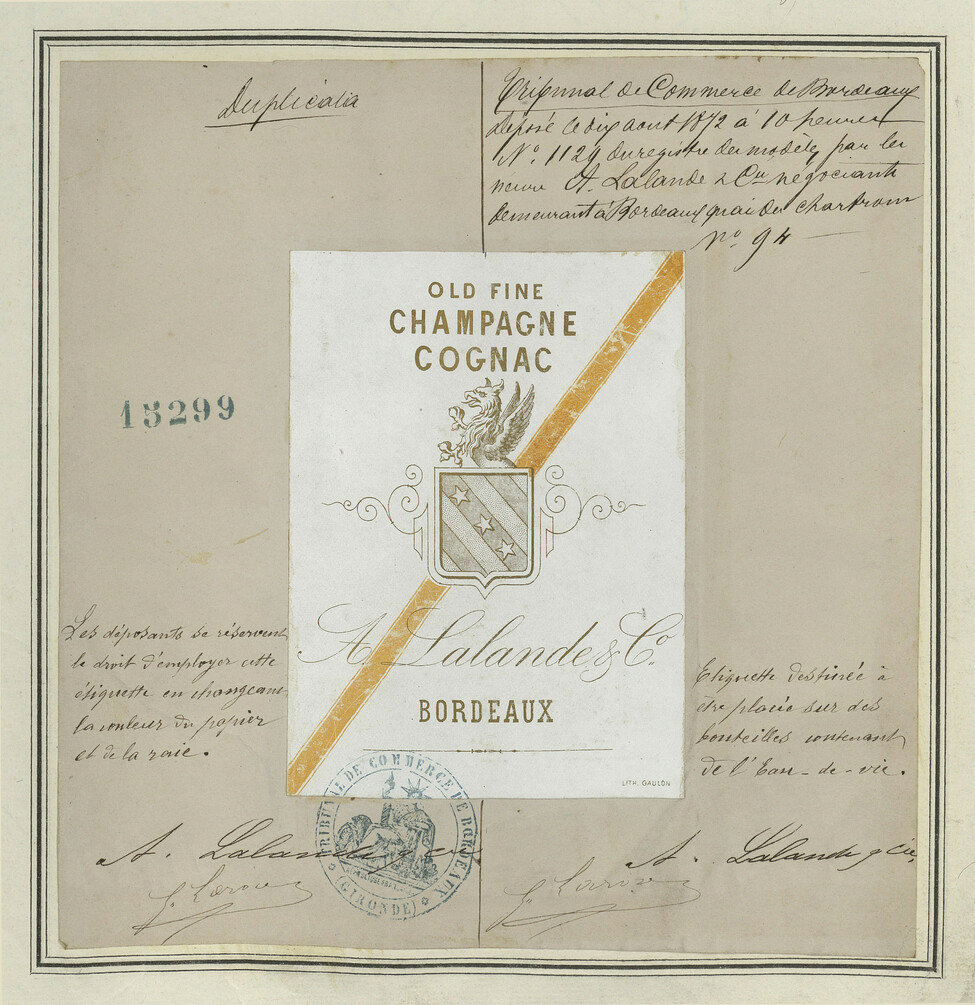 Duplicata
Tribunal de Commerce de Bordeaux
déposé le dix aout 1872 à 10 heures
No. 1129 du registre des modèles, par les
sieurs A. Lalande & Cie négociants
demeurant à Bordeaux quai des Chartrons
no 94
OLD FINE
CHAMPAGNE
COGNAC
15299
Les déposants se réservent
le droit d'employer cette
étiquette en changeant
la couleur du papier
et de la raie.
A. Lalande & Co.
BORDEAUX
Etiquette destinée à
être placée sur des
bouteilles contenant
de l'Eau-de-vie.
LITH. GAULON
TRIBUNAL DE COMMERCE DE BORDEAUX
(GIRONDE)
A. Lalande & cie
A. Lalande & cie